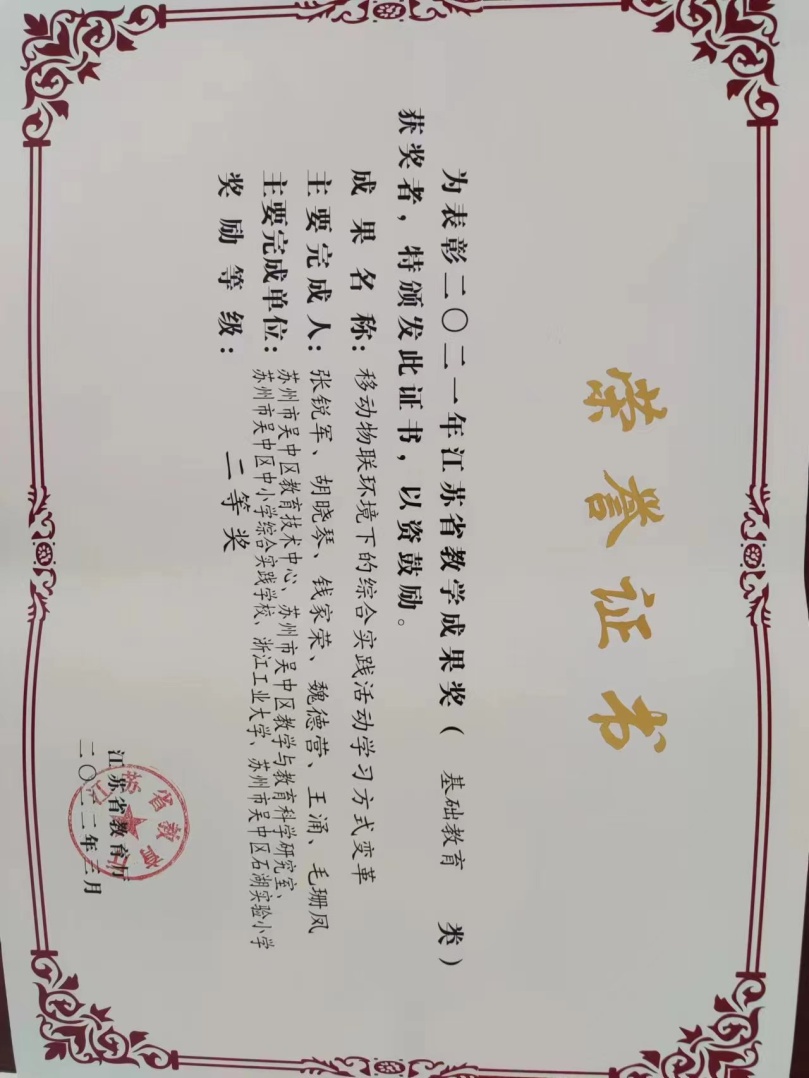 荣誉证书
为表彰二〇二一年江苏省教学成果奖（ 基础教育 类）
获奖者，特颁发此证书，以资鼓励。
成果名称：移动物联环境下的综合实践活动学习方式变革
主要完成人：张锐军、胡晓琴、钱家荣、魏德营、王涌、毛珊凤
主要完成单位：苏州市吴中区教育技术中心、苏州市吴中区教学与教育科学研究室、
苏州市吴中区中小学综合实践学校、浙江工业大学、苏州市吴中区石湖实验小学
奖励等级：二等奖
江苏省教育厅
二〇二二年三月